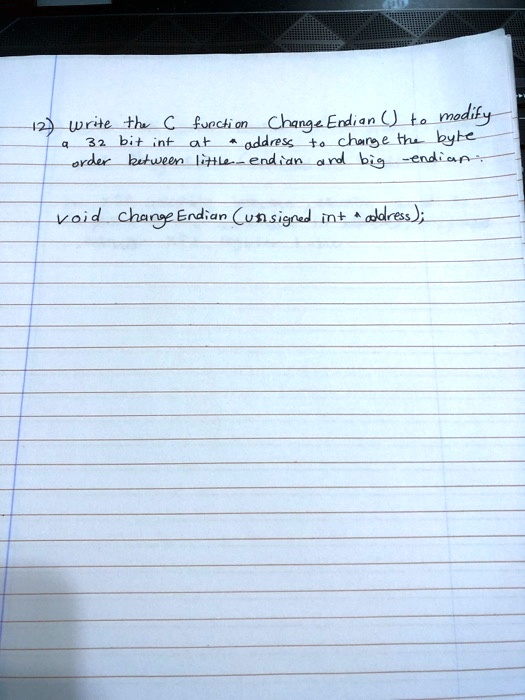 12) Write the C function ChangeEndian () to modify
a 32 bit int at * address to change the byte
order between little-endian and big-endian.
void changeEndian (unsigned int * address);